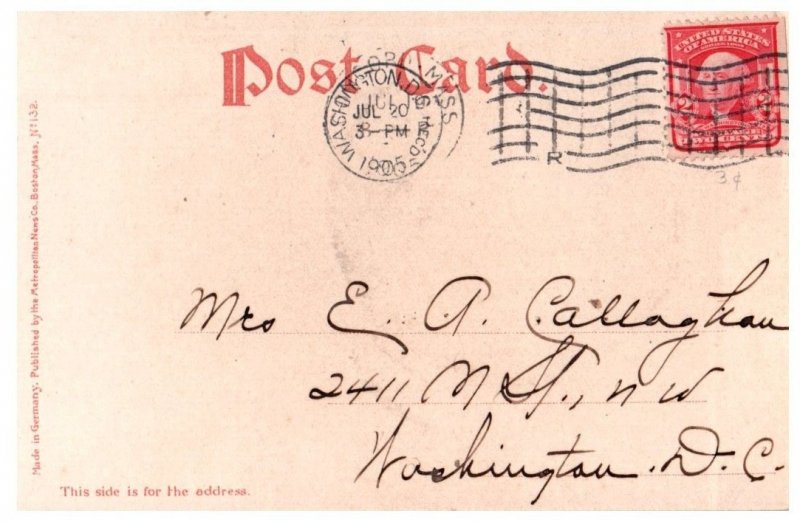 Post Card.
UNITED STATES
OF AMERICA
WASHINGTON, D.C.
JUL 20
3-PM
1905
REC'D
MASS
R
3¢
Mrs E. A. Callaghan
2411 M St., N W
Washington. D. C.
This side is for the address.
Made in Germany. Published by the Metropolitan News Co., Boston, Mass. No 132.